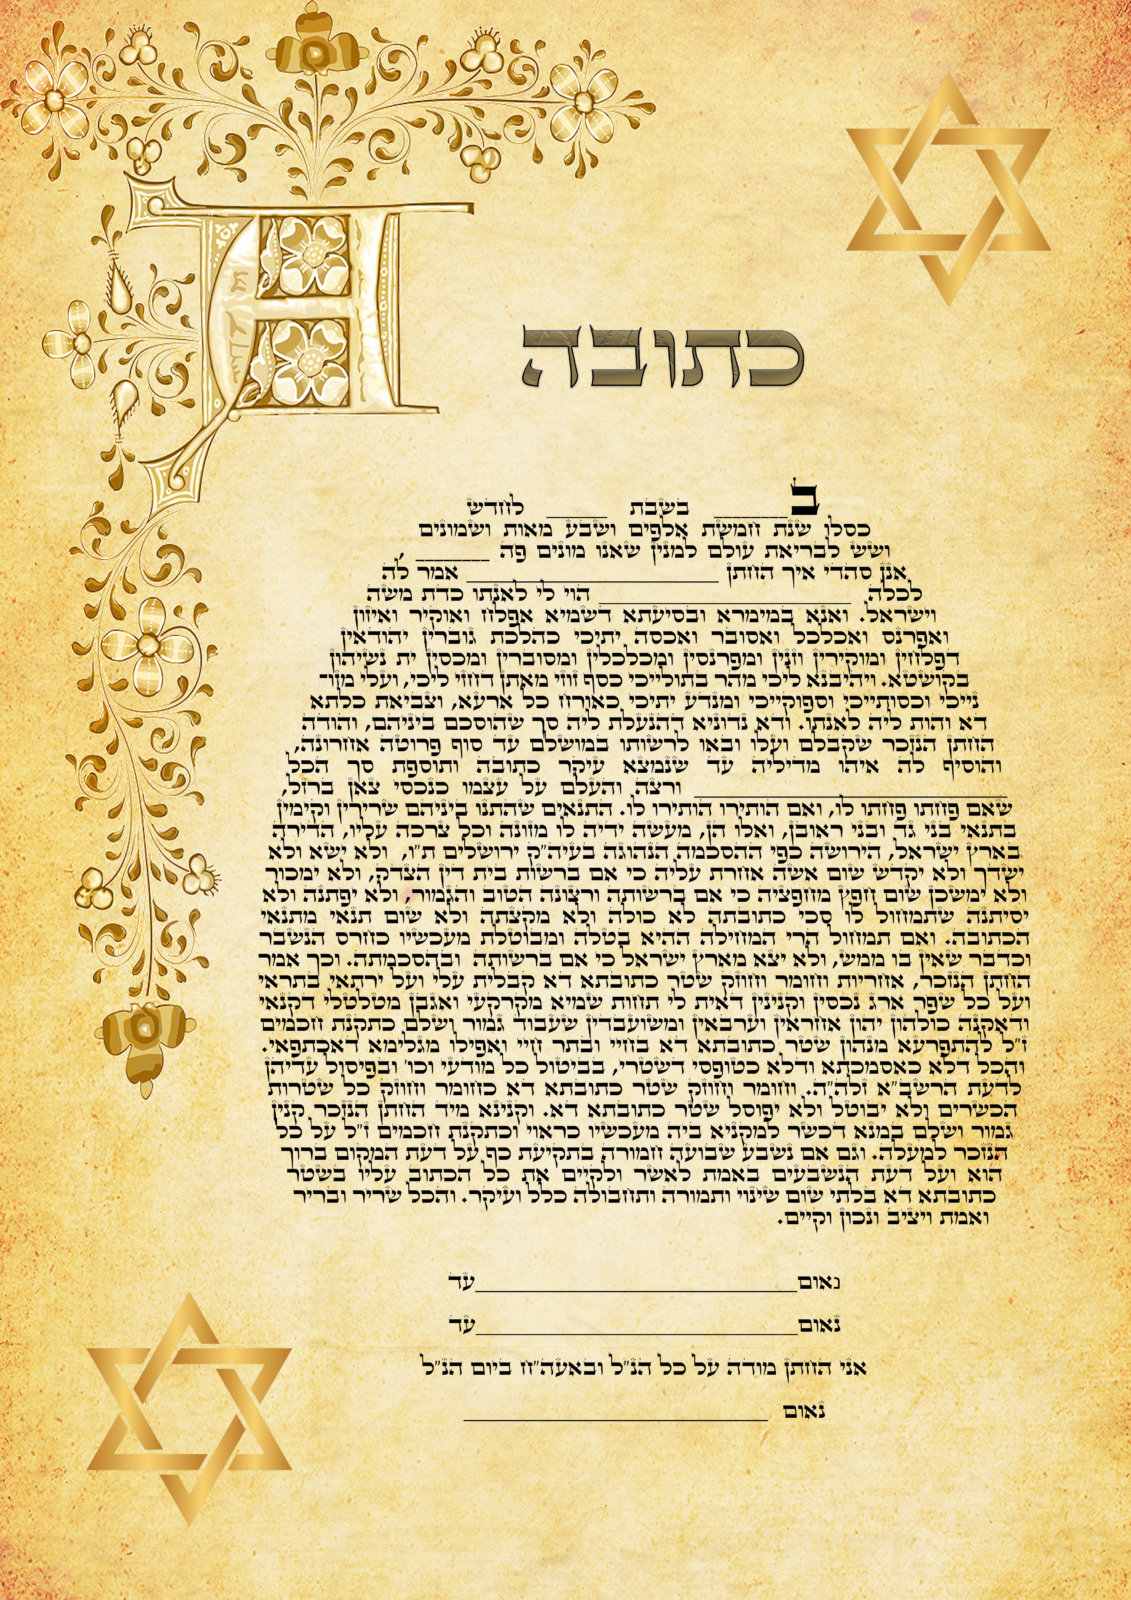 כתובה
ב________ בשבת ______ לחדש
כסלו שנת חמשת אלפים ושבע מאות ושמונים
ושש לבריאת עולם למנין שאנו מונים פה ________ ,
אנן סהדי איך החתן _________________________ אמר לה
לכלה _________________________ הוי לי לאנתו כדת משה
וישראל. ואנא במימרא ובסיעתא דשמיא אפלח ואוקיר ואיזון
ואפרנס ואכלכל ואסובר ואכסה יתיכי כהלכת גוברין יהודאין
דפלחין ומוקירין וזנין ומפרנסין ומכלכלין ומסוברין ומכסין ית נשיהון
בקושטא. ויהיבנא ליכי מהר בתולייכי כסף זוזי מאתן דחזי ליכי, ועלי מזו־
נייכי וכסותייכי וספוקייכי ומנדע יתיכי כאורח כל ארעא, וצביאת כלתא
דא והות ליה לאנתו. ודא נדוניא דהנעלת ליה סך שהוסכם ביניהם, והודה
החתן הנזכר שקבלם ועלו ובאו לרשותו במושלם עד סוף פרוטה אחרונה,
והוסיף לה איהו מדיליה עד שנמצא עיקר כתובה ותוספת סך הכל
_______________________________ ורצה והעלם על עצמו כנכסי צאן ברזל,
שאם פחתו פחתו לו, ואם הותירו הותירו לו. התנאים שהתנו ביניהם שרירין וקימין
בתנאי בני גד ובני ראובן, ואלו הן, מעשה ידיה לו מזונה וכל צרכה עליו, הדירה
בארץ ישראל, הירושה כפי ההסכמה הנהוגה בעיה"ק ירושלים ת"ו, ולא ישא ולא
ישדך ולא יקדש שום אשה אחרת עליה כי אם ברשות בית דין הצדק, ולא ימכור
ולא ימשכן שום חפץ מחפציה כי אם ברשותה ורצונה הטוב והגמור, ולא יפתנה ולא
יסיתנה שתמחול לו סכי כתובתה לא כולה ולא מקצתה ולא שום תנאי מתנאי
הכתובה. ואם תמחול הרי המחילה ההיא בטלה ומבוטלת מעכשיו כחרס הנשבר
וכדבר שאין בו ממש, ולא יצא מארץ ישראל כי אם ברשותה ובהסכמתה. וכך אמר
החתן הנזכר, אחריות וחומר וחוזק שטר כתובתא דא קבלית עלי ועל ירתאי בתראי
ועל כל שפר ארג נכסין וקנינין דאית לי תחות שמיא מקרקעי ואגבן מטלטלי דקנאי
ודאקנה כולהון יהון אחראין וערבאין ומשועבדין שעבוד גמור ושלם כתקנת חכמים
ז"ל להתפרעא מנהון שטר כתובתא דא בחיי ובתר חיי ואפילו מגלימא דאכתפאי.
והכל דלא כאסמכתא ודלא כטופסי דשטרי, בביטול כל מודעי וכו' ובפיסול עדיהן
לדעת הרשב"א זלה"ה. וחומר וחוזק שטר כתובתא דא כחומר וחוזק כל שטרות
הכשרים ולא יבוטל ולא יפוסל שטר כתובתא דא. וקנינא מיד החתן הנזכר קנין
גמור ושלם במנא דכשר למקניא ביה מעכשיו כראוי וכתקנת חכמים ז"ל על כל
הנזכר למעלה. וגם אם נשבע שבועה חמורה בתקיעת כף על דעת המקום ברוך
הוא ועל דעת הנשבעים באמת לאשר ולקיים את כל הכתוב עליו בשטר
כתובתא דא בלתי שום שינוי ותמורה ותחבולה כלל ועיקר. והכל שריר ובריר
ואמת ויציב ונכון וקיים.
נאום________________________________עד
נאום________________________________עד
אני החתן מודה על כל הנ"ל ובאעה"ח ביום הנ"ל
נאום ______________________________